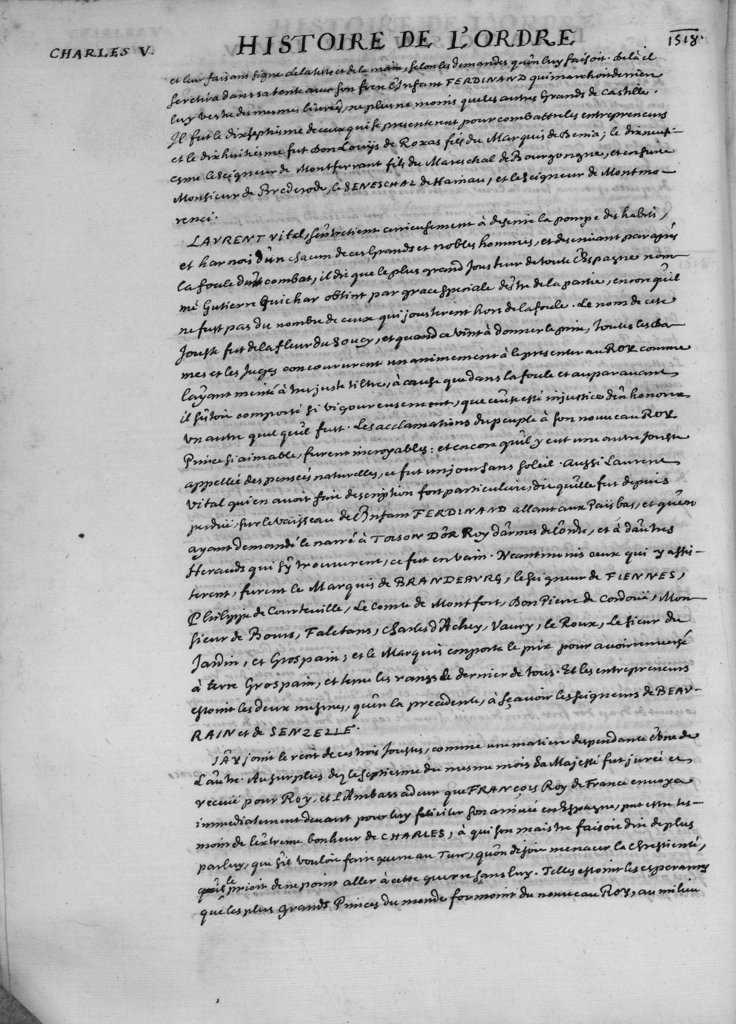 CHARLES V. HISTOIRE DE L'ORDRE 1518.
et leur faisant signe de la teste et de la main, selon les demandes qu'on luy faisoit. de là il
se retira dans sa tente avec son frere l'Infant FERDINAND qui marchoit derriere
luy vestu des mesmes livrées, ne plus ne moins que les autres Grands de Castille.
Il fut le dixseptiesme de ceux qui se presenterent pour combattre les entrepreneurs
et le dixhuitiesme fut Don Louys de Roxas fils du Marquis de Denia; le dixneufi-
esme le Seigneur de Montferrant fils du Mareschal de Bourgongne, et ensuite
Monsieur de Brederode, le SENESCHAL de Hainau, et le Seigneur de Montmo-
renci.
LAURENT Vital, s'entretient curieusement à descrire la pompe des habits,
et harnois d'un chacun de ces Grands et Nobles hommes, et descrivant par aprés
la foule du combat, il dit que le plus grand Jousteur de toute l'Espagne nom-
mé Gutierre Quichar obtint par grace speciale d'estre de la partie, encor qu'il
ne fust pas du nombre de ceux qui jousterent hors de la foule. Le nom de ceste
Jouste fut de la fleur du Soucy, et quand ce vint à donner le prix, toutes les Da-
mes et les Juges concoururent unanimement à le presenter au ROY comme
l'ayant merité à tres juste tiltre, à cause que dans la foule et auparavant
il s'estoit comporté si vigoureusement, que c'eust esté injustice d'en honorer
un autre quel qu'il fust. Les acclamations du peuple à son nouveau ROY
Prince si aimable, furent incroyables: et encor qu'il y eut une autre Jouste
appellée des pensées naturelles, ce fut un jour sans soleil. Aussi Laurent
Vital qui en avoit fait description fort particuliere, dit qu'elle fut depuis
perdue, sur le vaisseau de l'Infant FERDINAND allant aux Païs bas, et qu'en
ayant demandé le narré à TOISON D'OR Roy d'armes de l'ordre, et à d'autres
Herauds qui s'y trouverent, ce fut en vain. Neantmoins ceux qui y assis-
terent, furent le Marquis de BRANDEBURG, le Seigneur de FIENNES,
Philippe de Courteville, Le Comte de Montfort, Don Pierre de Cordouë, Mon-
sieur de Bours, Faletans, Charles d'Achey, Vaury, le Roux, le Sieur du
Jardin, et Grospain; et le Marquis emporta le prix pour avoir renversé
à terre Grospain, et tenu les rangs le dernier de tous. Et les entrepreneurs
estoient les deux mesmes, qu'en la precedente, à sçavoir les Seigneurs de BEAU-
RAIN et de SENZELLE.
J'AY joint le recit de ces trois Joustes, comme une matiere despendante l'une de
l'autre. Au surplus dez le septiesme du mesme mois sa Majesté fut jurée et
receuë pour Roy, et l'Ambassadeur que FRANÇOIS Roy de France envoya
immediatement devant pour luy feliciter son arrivée en Espagne, put estre tes-
moin de l'extreme bonheur de CHARLES, à qui son maistre faisoit dire de plus
par luy, que s'il vouloit faire guerre au Turc, qu'on disoit menacer la Chrestienté,
qu'il le prioit de ne point aller à cette guerre sans luy. Telles estoient les esperances
que les plus grands Princes du monde formoient du nouveau ROY, au milieu